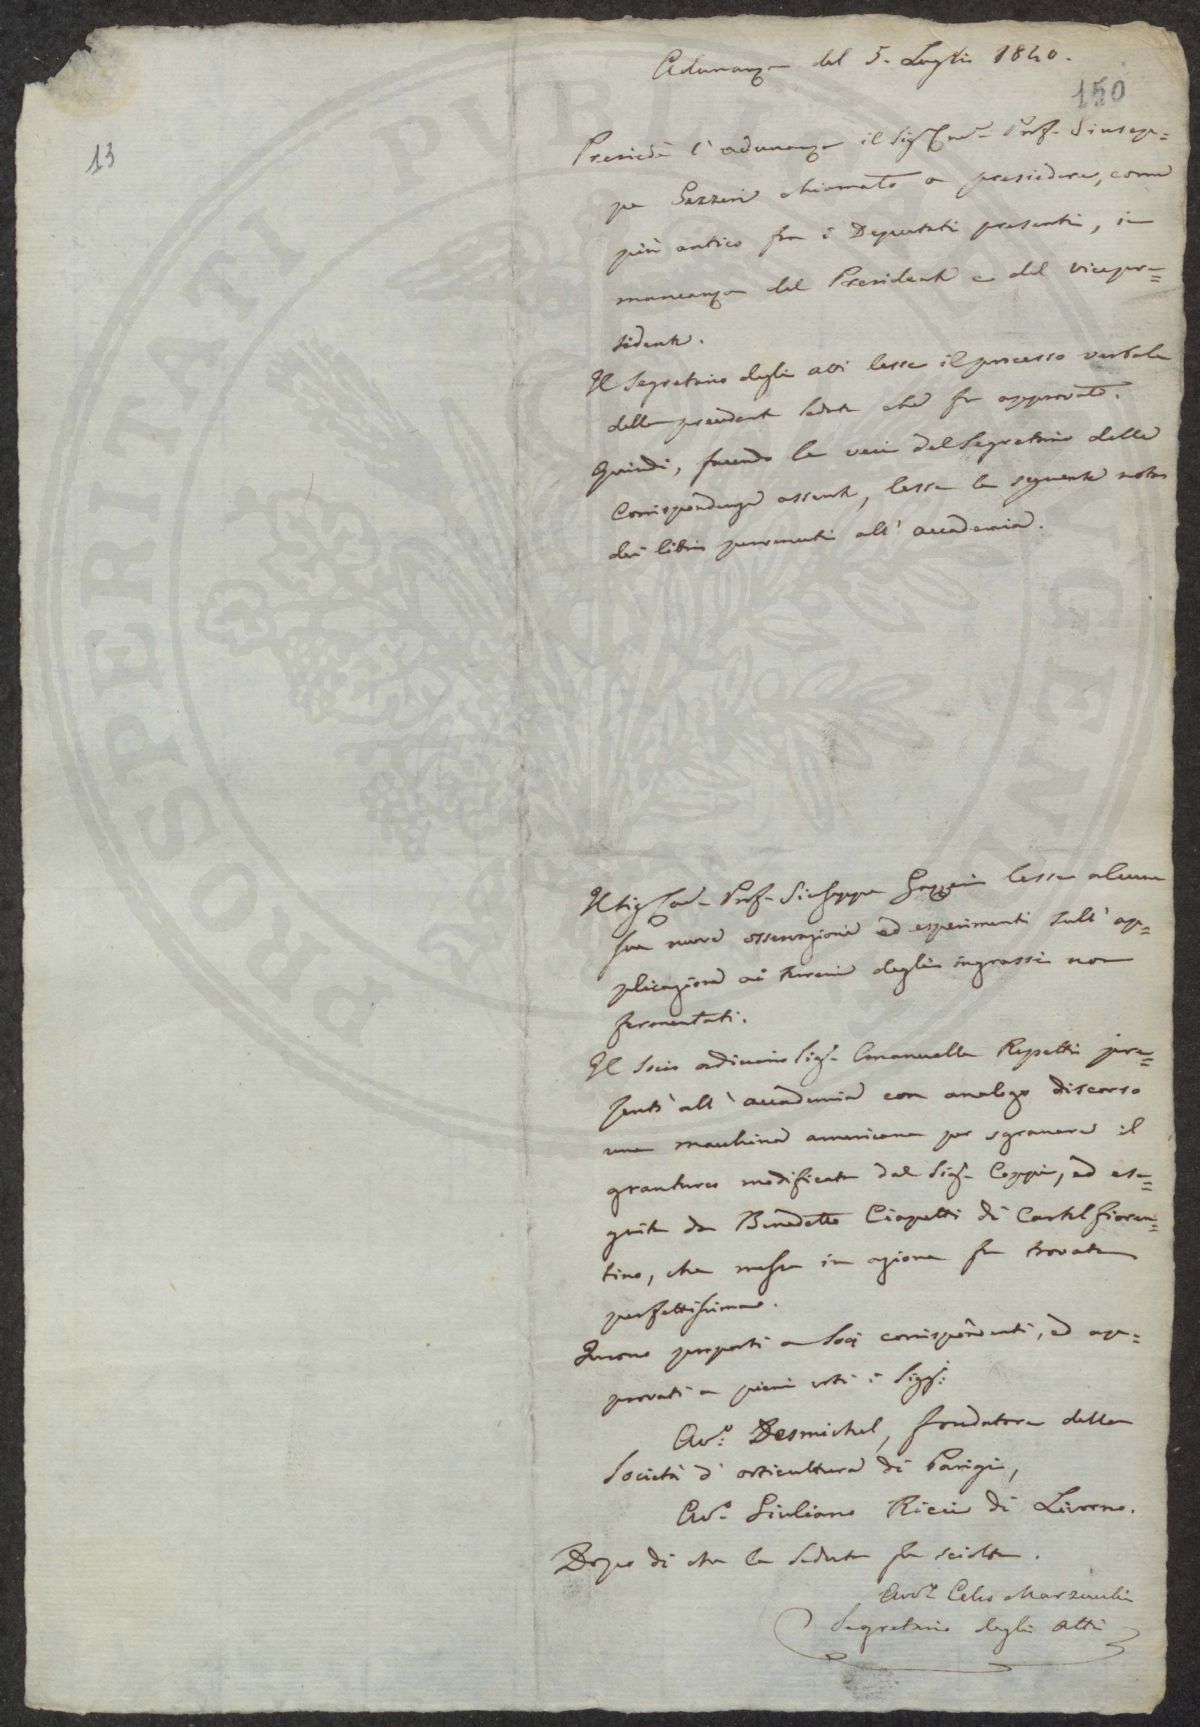 Adunanza del 5. Luglio 1840.
150
13
Presiedè l'adunanza il Sig. Cav. Prof. Giusep=
pe Gazzeri chiamato a presiedere, come
più antico fra i Deputati presenti, in
mancanza del Presidente e del vicepre=
sidente.
Il Segretario degli atti lesse il processo verbale
della precedente seduta che fu approvato.
Quindi, facendo le veci del Segretario delle
Corrispondenze assente, lesse la seguente nota
dei libri pervenuti all'accademia.
Il Sig. Cav. Prof. Giuseppe Gazzeri lesse alcune
sue nuove osservazioni ed esperimenti sull'ap=
plicazione ai terreni degli ingrassi non
fermentati.
Il Socio ordinario Sig. Emanuelle Repetti pre=
sentò all'accademia con analogo discorso
una macchina americana per sgranare il
granturco modificata dal Sig. Coppi, ed ese=
guita da Benedetto Ciapetti di Castelfioren=
tino, che messa in azione fu trovata
perfettissima.
Furono proposti a Socj corrispondenti, ed ap=
provati a pieni voti i Sigg.i
Av.o Desmichel, fondatore della
Società d'orticultura di Parigi,
Av.o Giuliano Ricci di Livorno.
Dopo di che la Seduta fu sciolta.
Avv.o Celso Marzucchi
Segretario degli Atti
PROSPERITATI PUBLICAE AUGENDAE